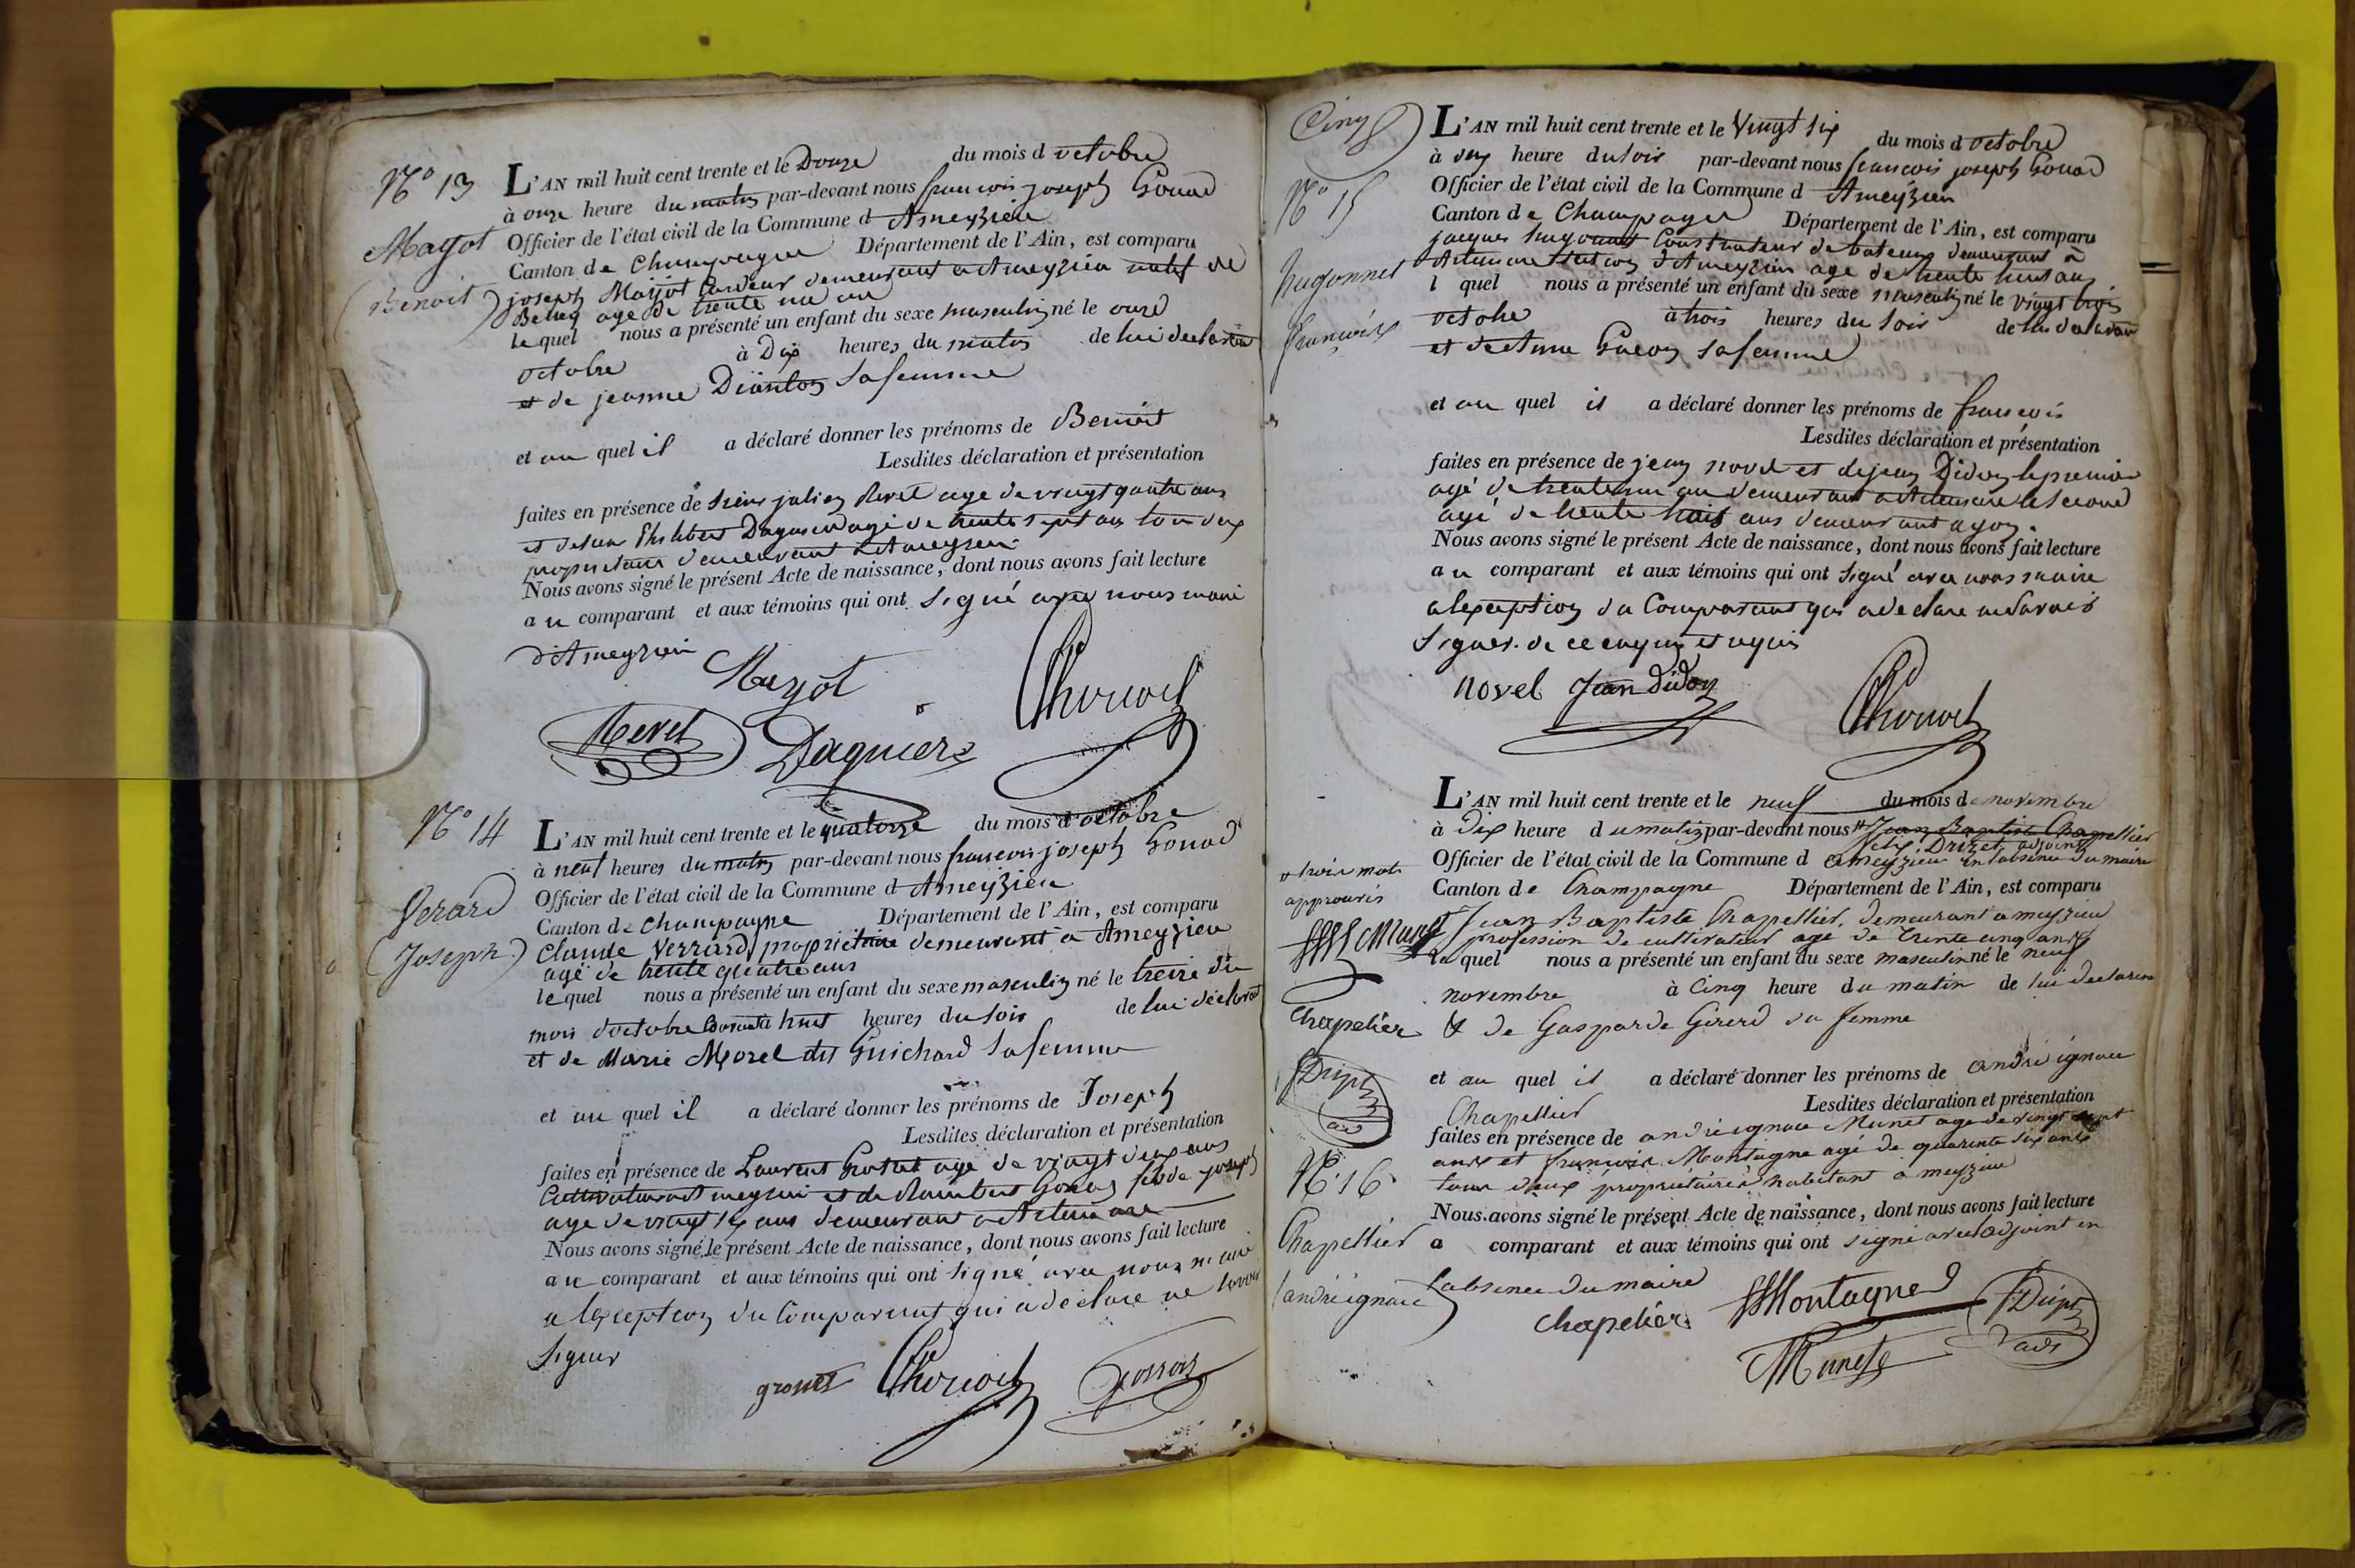 N° 13
Mayot
(Benoit)
L'AN mil huit cent trente et le Douze du mois d octobre
à onze heure du matin par-devant nous francois joseph
Officier de l'état civil de la Commune d Ameyzieu
Canton de Champagne Département de l'Ain, est comparu
joseph Mayot demeurant a Ameyzieu natif de
Belley age de trente un an
le quel nous a présenté un enfant du sexe masculin né le onze
octobre à Dix heures du matin de lui declarant
et de jeanne sa femme
et au quel il a déclaré donner les prénoms de Benoit
Lesdites déclaration et présentation
faites en présence de sieur julien Revel age de vingt quatre ans
et de sieur Philibert age de trente sept ans tous deux
proprietaire demeurant a Ameyzieu
Nous avons signé le présent Acte de naissance, dont nous avons fait lecture
au comparant et aux témoins qui ont signé avec nous maire
d'Ameyzieu
Mayot
Revel Daguier
N° 14
Gerard
(Joseph)
L'AN mil huit cent trente et le quatorze du mois d'octobre
à neuf heures du matin par-devant nous francois joseph
Officier de l'état civil de la Commune d Ameyzieu
Canton de Champagne Département de l'Ain, est comparu
Claude Verrard proprietaire demeurant a Ameyzieu
agé de trente quatre ans
le quel nous a présenté un enfant du sexe masculin né le treize du
mois d'octobre à huit heures du soir de lui déclarant
et de Marie Morel dit Guichard sa femme
et au quel il a déclaré donner les prénoms de Joseph
Lesdites déclaration et présentation
faites en présence de Laurent age de vingt deux ans
et de Rambert fils de joseph
age de vingt six ans demeurant a Artemare
Nous avons signé le présent Acte de naissance, dont nous avons fait lecture
au comparant et aux témoins qui ont signé avec nous maire
a lexception du Comparant qui a déclare ne savoir
signer
Cinq
N° 15
hugonnet
francois
L'AN mil huit cent trente et le Vingt six du mois d octobre
à heure du soir par-devant nous francois joseph
Officier de l'état civil de la Commune d Ameyzieu
Canton de Champagne Département de l'Ain, est comparu
jacques Constructeur de bateaux demeurant a
Artemare d'Ameyzieu age de trente huit ans
l quel nous a présenté un enfant du sexe masculin né le vingt trois
octobre à trois heures du soir de lui declarant
et sa femme
et au quel il a déclaré donner les prénoms de francois
Lesdites déclaration et présentation
faites en présence de jean novel et de jean Didon le premier
agé de trente un an demeurant a Artemare le second
agé de trente trois ans demeurant a yon.
Nous avons signé le présent Acte de naissance, dont nous avons fait lecture
au comparant et aux témoins qui ont signé avec nous maire
a lexception du Comparant qui a declare ne savoir
signer. de ce enquis et requis
novel Jean Didon
L'AN mil huit cent trente et le neuf du mois de novembre
à Dix heure du matin par-devant nous Jean Baptiste Chapellier
Drizet adjoint
Officier de l'état civil de la Commune d ameyzieu en l'absence du maire
Canton de Champagne Département de l'Ain, est comparu
Jean Baptiste Chapellier demeurant a meyzieu
profession de cultivateur agé de trente cinq ans
Le quel nous a présenté un enfant du sexe masculin né le neuf
novembre à Cinq heure du matin de lui declarant
& de Gasparde Girerd sa femme
et au quel il a déclaré donner les prénoms de andré ignace
Chapellier Lesdites déclaration et présentation
faites en présence de andré ignace Munet age de vingt sept
ans et francois Montagne agé de quarente six ans
tous deux propriétaires habitant a meyzieu
Nous avons signé le présent Acte de naissance, dont nous avons fait lecture
a comparant et aux témoins qui ont signé avec l'adjoint en
l'absence du maire
trois mots
approuvés
Chapelier
N° 16
Chapellier
(andré ignace)
chapelier Montagne
Munet